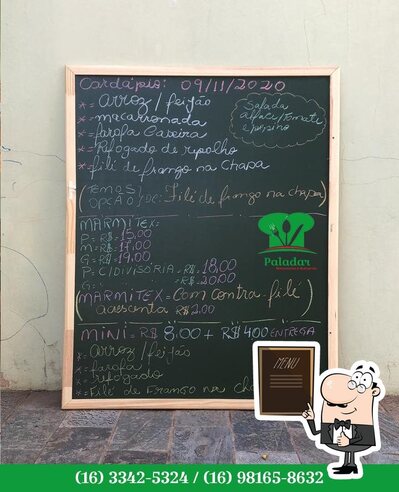 Cardápio: 09/11/2020
*= arroz/feijão
*= macarronada
*= farofa Caseira
*= Refogado de repolho
*= filé de frango na chapa
Salada
alface/Tomate
e pepino
(TEMOS/
OPÇÃO/DE: Filé de frango na chapa)
MARMITEX=
P= R$= 15,00
M= R$= 17,00
G= R$= 19,00
P= C/DIVISÓRIA= R$= 18,00
G= R$= 20,00
(MARMITEX= Com contra-filé
acrescenta R$2,00)
MINI= R$ 8,00 + R$ 4,00 ENTREGA
*= Arroz/feijão
*= farofa
*= refogado
*= Filé de Frango na ch
Paladar
MENU
(16) 3342-5324 / (16) 98165-8632